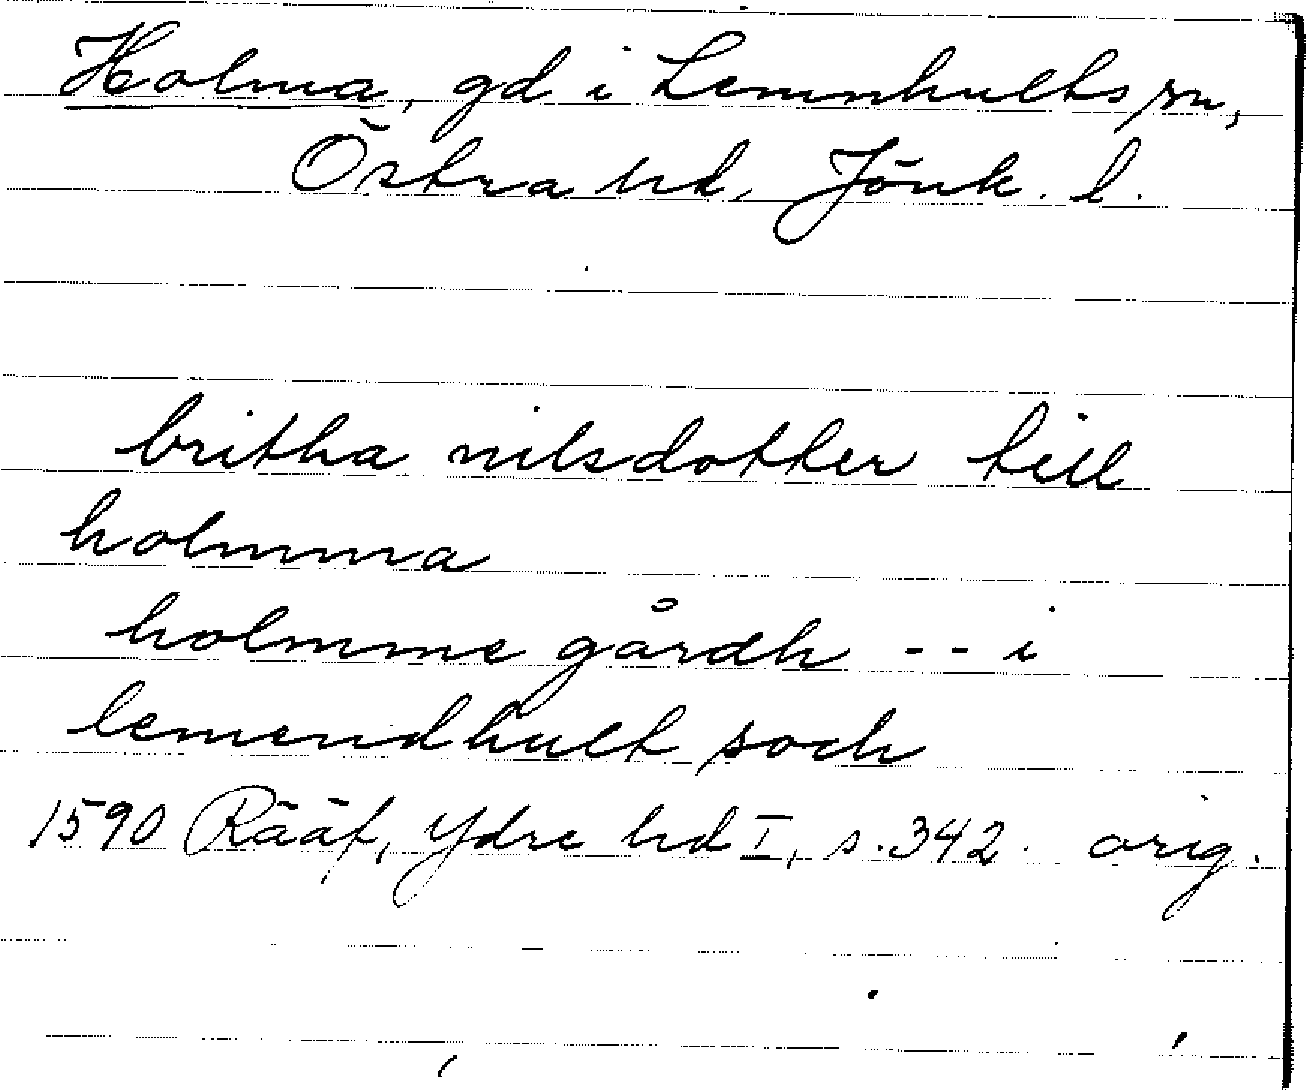 Holma, gd i Lemnhults sn,
Östra hd, Jönk. l.
britha nilsdotter till
holmma
holmme gårdh -- i
lemendhult soch
1590 Rääf, Ydre hd I, s. 342. orig.